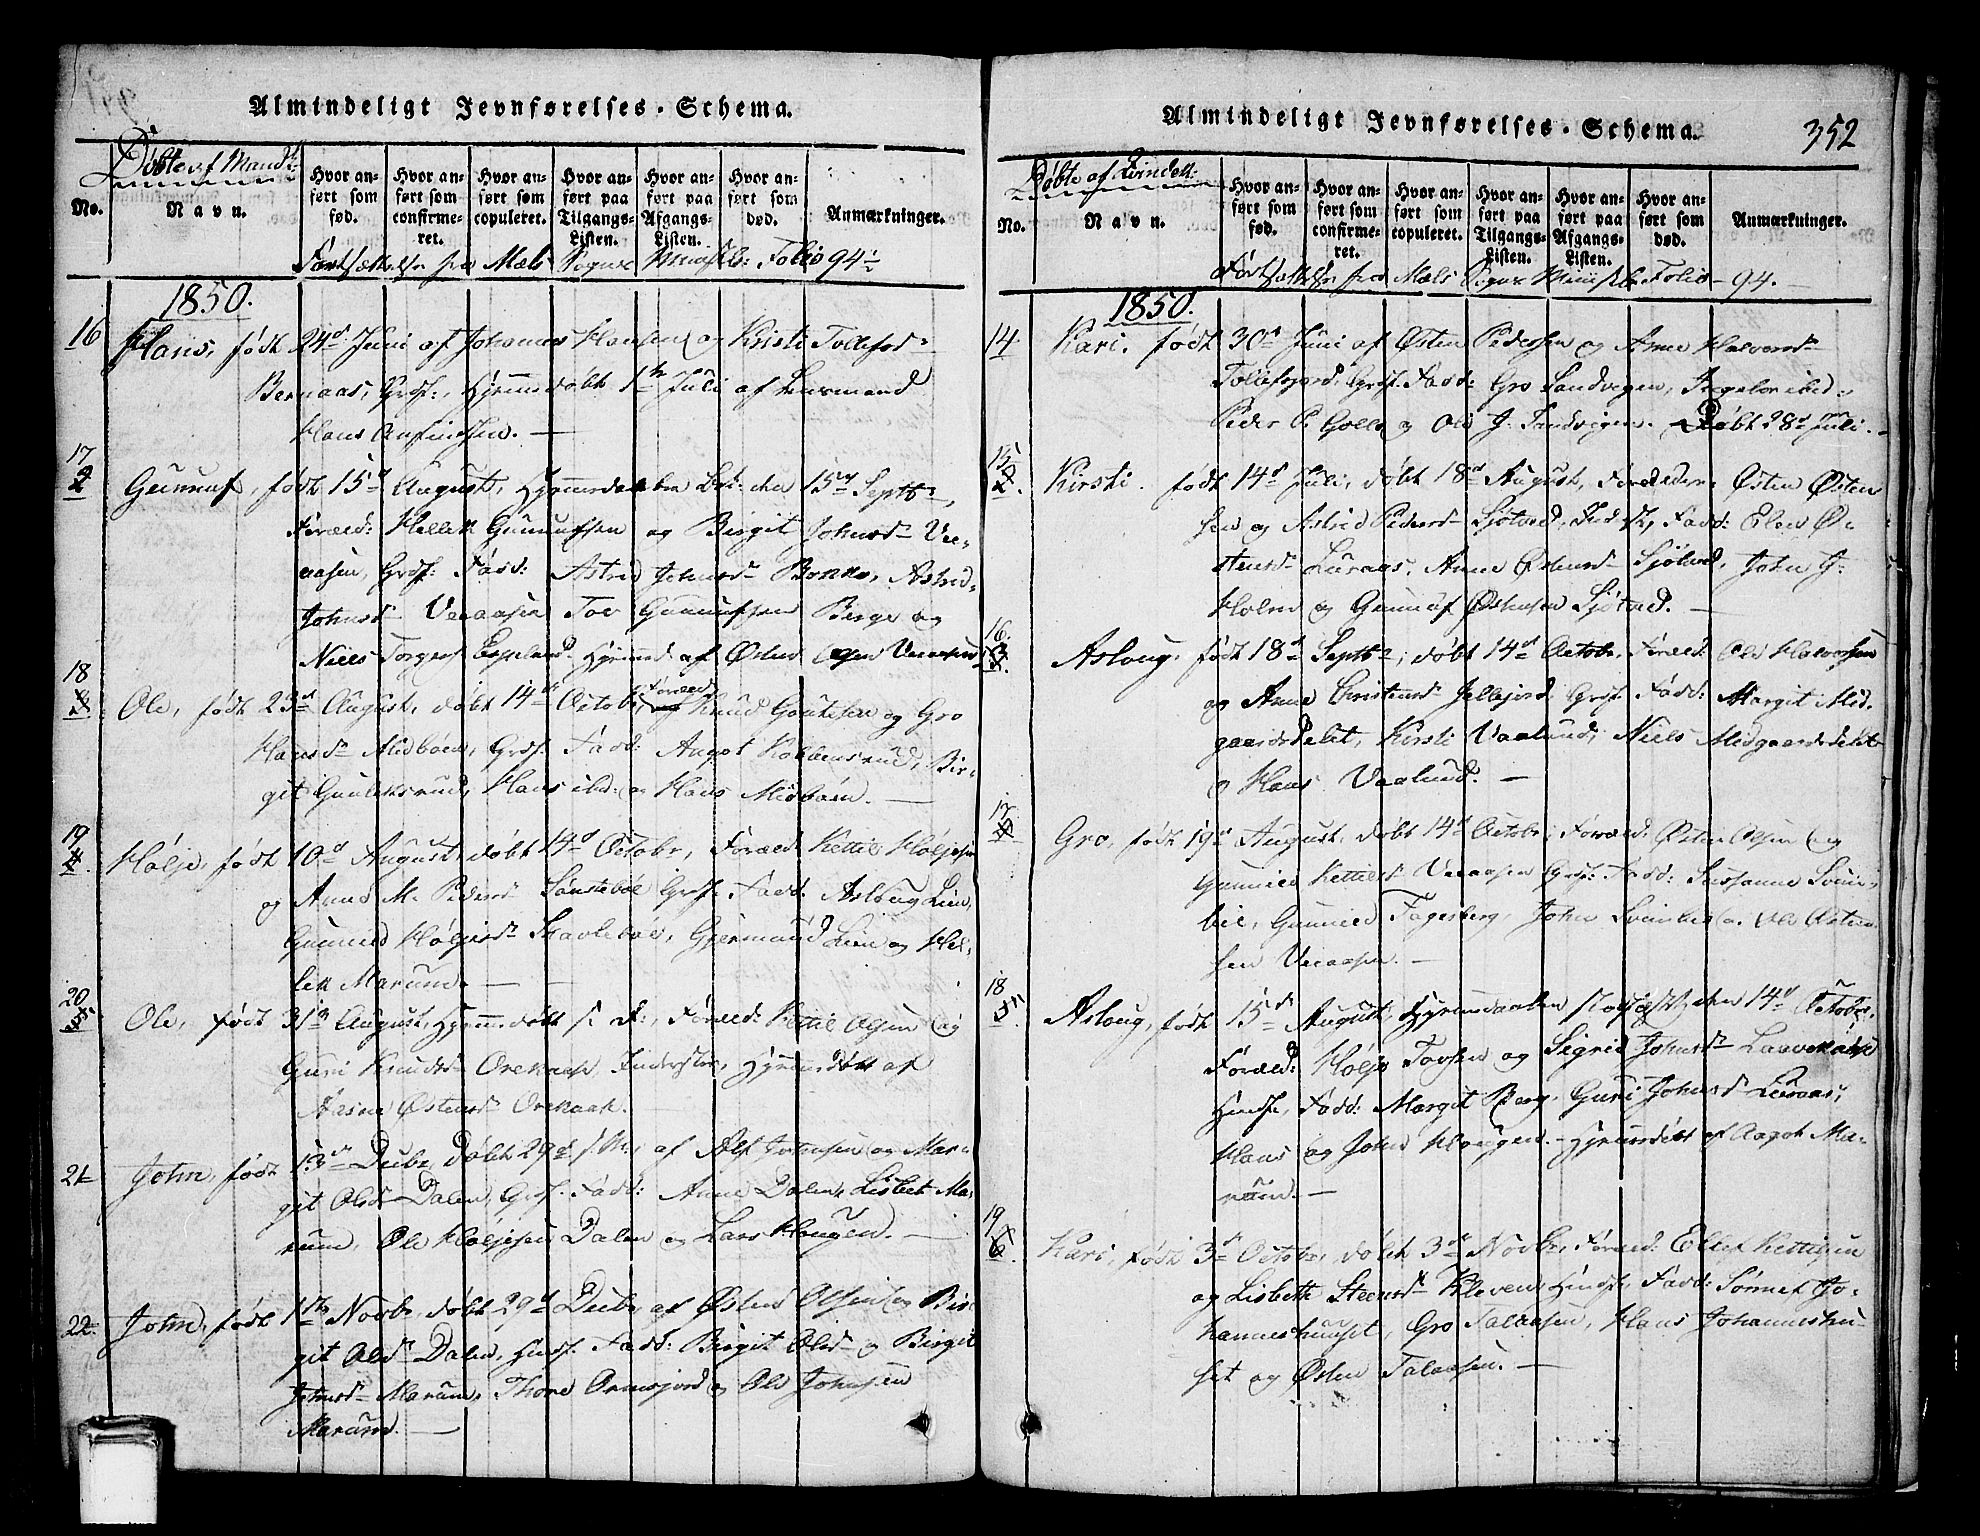 Almindeligt Jevnførelses-Schema.
Døbte af Mandk:
No.
Navn.
Hvor anført som fød.
Hvor anført som confirmeret.
Hvor anført som copuleret.
Hvor anført paa Tilgangs-Listen.
Hvor anført paa Afgangs-Listen.
Hvor anført som død.
Anmærkninger.
Fortsættelse fra Mæls Sogns Folio 94½
1850.
16 Hans, født 24d Juni af Johannes Hansen og Kristi Tollefsd:
Bernaas, Grosf:, Hjemmedøbt 1te Juli af Lensmand
Hans Anfindsen. —
17 2 Gunnuf, født 15d August, Hjemmedaaben den 15de Septb:,
Foræld: Hellek Gunnufsen og Birgit Johnsd Ve-
aasen, Grosf: Fadd: Astrid Johnsd Astrid
Johnsd Veaasen Tov Gunnufsen Berge og
Niels Torgers Espeland. Hjemmed af Østen Olsen Veaasen
18 3 Ole, født 23d August, døbt 14de Octobr, Foræld: Knud Gautesen og Gro
Hansd Midbøen, Grosf. Fadd: Aagot Kolbensrud, Bir-
git Gunleksrud, Hans ibd: og Hans Midbøen. —
19 4 Hølje, født 10d August, døbt 14d Octobr, Foræld: Kettil Høljesen
og Anne M. Pedersd Sønstebøe Grosf. Fadd. Aslaug Lien,
Gunnild Høljesd Skavlebøe, Gjermund Lien og Hel-
lek Marum. —
20 5 Ole, født 31te August, Hjemmedøbt s. D:, Foræld: Kettil Olsen og
Guri Knudsd Orekaas Hjemmedøbt af
Aasne Østensd Orekaas.
21 John, født 13de Decbr, døbt 29d s. M:, af Alf Johnsen og Mar-
git Olsd Dalen, Grosf. Fadd: Anne Dalen, Lisbet Ma-
rum, Ole Høljesen Dalen og Lars Haugen. —
22. John, født 1te Novbr, døbt 29d Decbr af Østen Olsen og Bir-
git Olsd Dalen, Hindsf. Fadd: Birgit Olsd og Birgit
Johnsd Marum, Thore Ormsjord og Ole Johnsen
Marum. —
Almindeligt Jevnførelses-Schema.
352
Døbte af Qvindek:
No.
Navn.
Hvor anført som fød.
Hvor anført som confirmeret.
Hvor anført som copuleret.
Hvor anført paa Tilgangs-Listen.
Hvor anført paa Afgangs-Listen.
Hvor anført som død.
Anmærkninger.
Fortsættelse fra Mæls Sogns Folio 94.
1850.
14. Kari, født 30d Juni af Østen Pedersen og Anne Halvorsd
Tollefsjord, Grosf. Fadd: Gro Sandvigen, Ingeborg ibid:,
Peder P. og Ole J. Sandvigen. Døbt 28d Juli. —
15 2. Kirsti. født 14d Juli, døbt 18d August, Forældre: Østen Østen
sen og Astrid Pedersd Sjøtved, Fadd: Elen Ø-
stensd Luraas, Anne Østensd Sjøtved, John J:
Holm og Gunnuf Østensen Sjøtved. —
16. 3. Aslaug, født 18d Septb:, døbt 14d Octobr, Foræld: Ole Halvorsen
og Anne Christensd Jellejord Grosf. Fadd: Margit Mid-
gaardsdelet, Kirsti Vaalund, Niels Midgaardsdelet
og Hans Vaalund. —
17 4 Gro, født 19d August, døbt 14d Octobr, Foræld: Østen Olsen og
Gunnild Kettilsd Veaasen Grosf: Fadd: Susanne Svine-
bil, Gunnild Fagerberg, John Ole Østen-
sen Veaasen. —
18 5. Aslaug, født 15d August, Hjemmedaaben den 14d Octobr,
Foræld: Hølje Tovsen og Sigrid Johnsd
Hindsf., Fadd: Margit Berg, Guri Johnsd Luraas,
Hans og John Haugen. — Hjemmedøbt af Aagot Ma-
rum. —
19 6. Kari, født 3d Octobr, døbt 3de Novbr, Foræld: Ellef Kettilsen
og Lisbeth Steensd Kleven, Hindsf, Fadd: Sønnet Jo-
hanneshuuset, Gro Talaasen, Hans Johanneshu-
set og Østen Talaasen. —